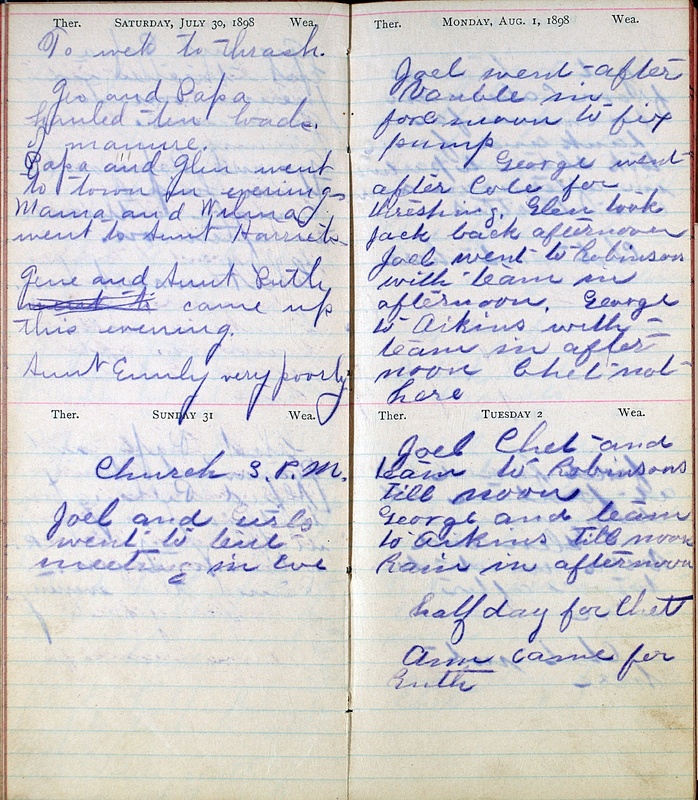 Ther. SATURDAY, JULY 30, 1898 Wea.
To wet to thrash.
Geo and Papa
hauled ten loads
of manure.
Papa and Glen went
to town in evening
Mama and Wilma
went to Aunt Harriets
Gene and Aunt Ruth
came up
this evening.
Aunt Emily very poorly
Ther. SUNDAY 31 Wea.
Church 3. P.M.
Joel and girls
went to tent
meeting in Eve
Ther. MONDAY, AUG. 1, 1898 Wea.
Joel went after
in
forenoon to fix
pump
George went
after Cole for
threshing. Glen took
Jack back afternoon
Joel went to Robinson
with team in
afternoon. George
to Aikins with
team in after
noon Chet not
here
Ther. TUESDAY 2 Wea.
Joel Chet and
team to Robinsons
till noon
George and team
to Aikins till noon
Rain in afternoon
half day for Chet
Ann came for
Ruth